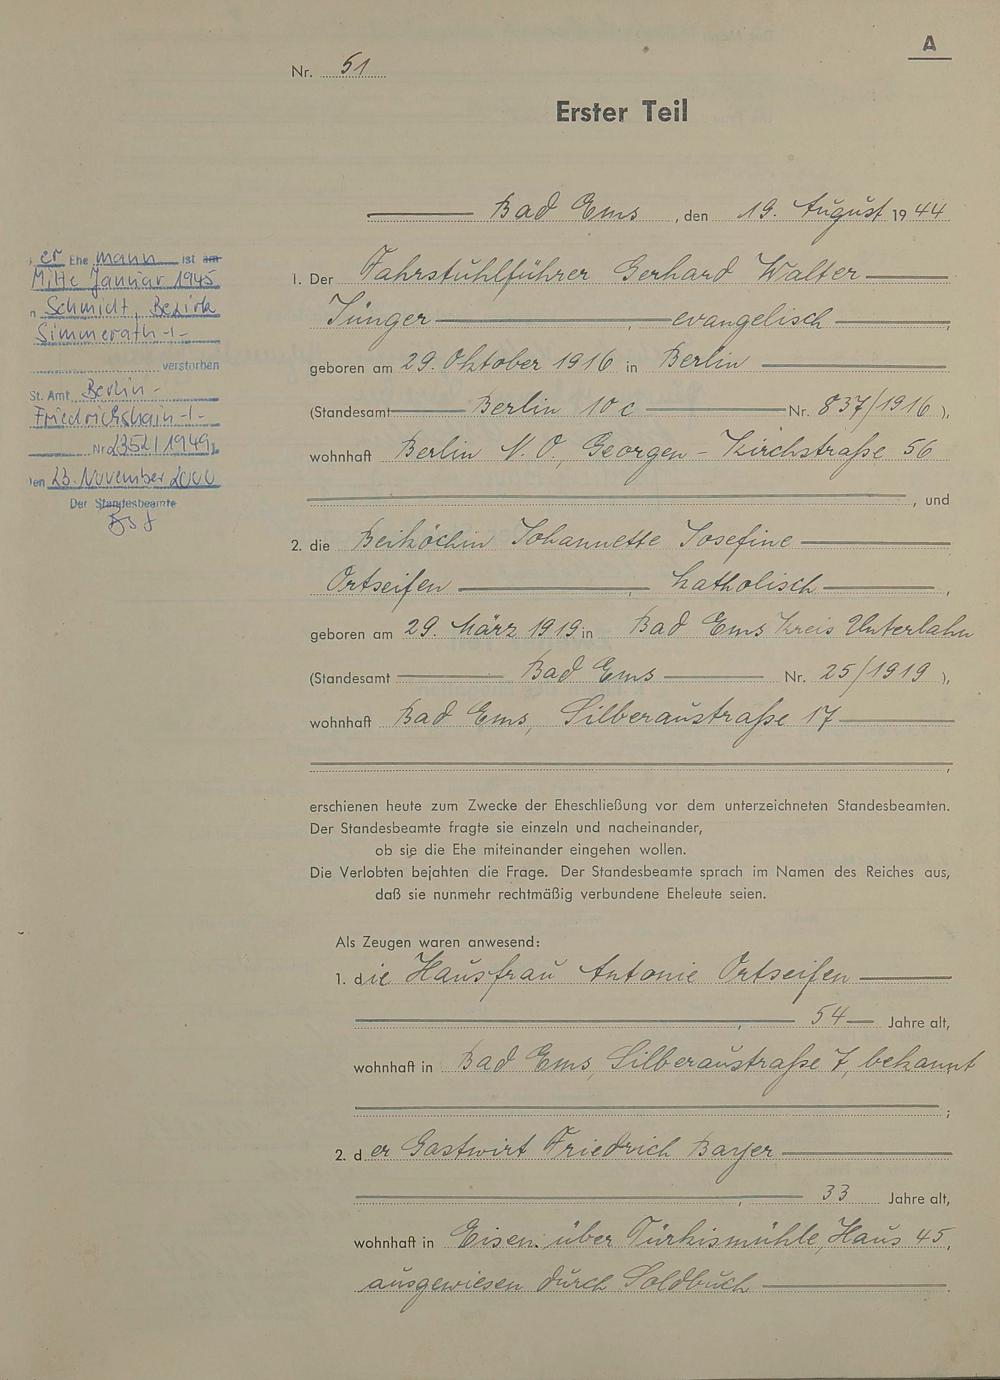 A
Nr. 51
Erster Teil
Bad Ems, den 19. August 1944
er Ehe mann ist am
Mitte Januar 1945
n Schmidt, Bezirk
Simmerath -/-
verstorben
St. Amt Berlin-
Friedrichshain -/-
Nr. 2352/1949
en 23. November 2000
Der Standesbeamte
1. Der Fahrstuhlführer Gerhard Walter
Jünger, evangelisch,
geboren am 29. Oktober 1916 in Berlin
(Standesamt Berlin 10c Nr. 837/1916),
wohnhaft Berlin N.O., Georgen-Kirchstraße 56
, und
2. die Beiköchin Johannette Josefine
Ortseifen, katholisch,
geboren am 29. März 1919 in Bad Ems Kreis Unterlahn
(Standesamt Bad Ems Nr. 25/1919),
wohnhaft Bad Ems, Silberaustraße 17
,
erschienen heute zum Zwecke der Eheschließung vor dem unterzeichneten Standesbeamten.
Der Standesbeamte fragte sie einzeln und nacheinander,
ob sie die Ehe miteinander eingehen wollen.
Die Verlobten bejahten die Frage. Der Standesbeamte sprach im Namen des Reiches aus,
daß sie nunmehr rechtmäßig verbundene Eheleute seien.
Als Zeugen waren anwesend:
1. die Hausfrau Antonie Ortseifen
, 54 Jahre alt,
wohnhaft in Bad Ems, Silberaustraße 7, bekannt
;
2. der Gastwirt Friedrich Bayer
, 33 Jahre alt,
wohnhaft in Eisen über Türkismühle, Haus 45,
ausgewiesen durch Soldbuch